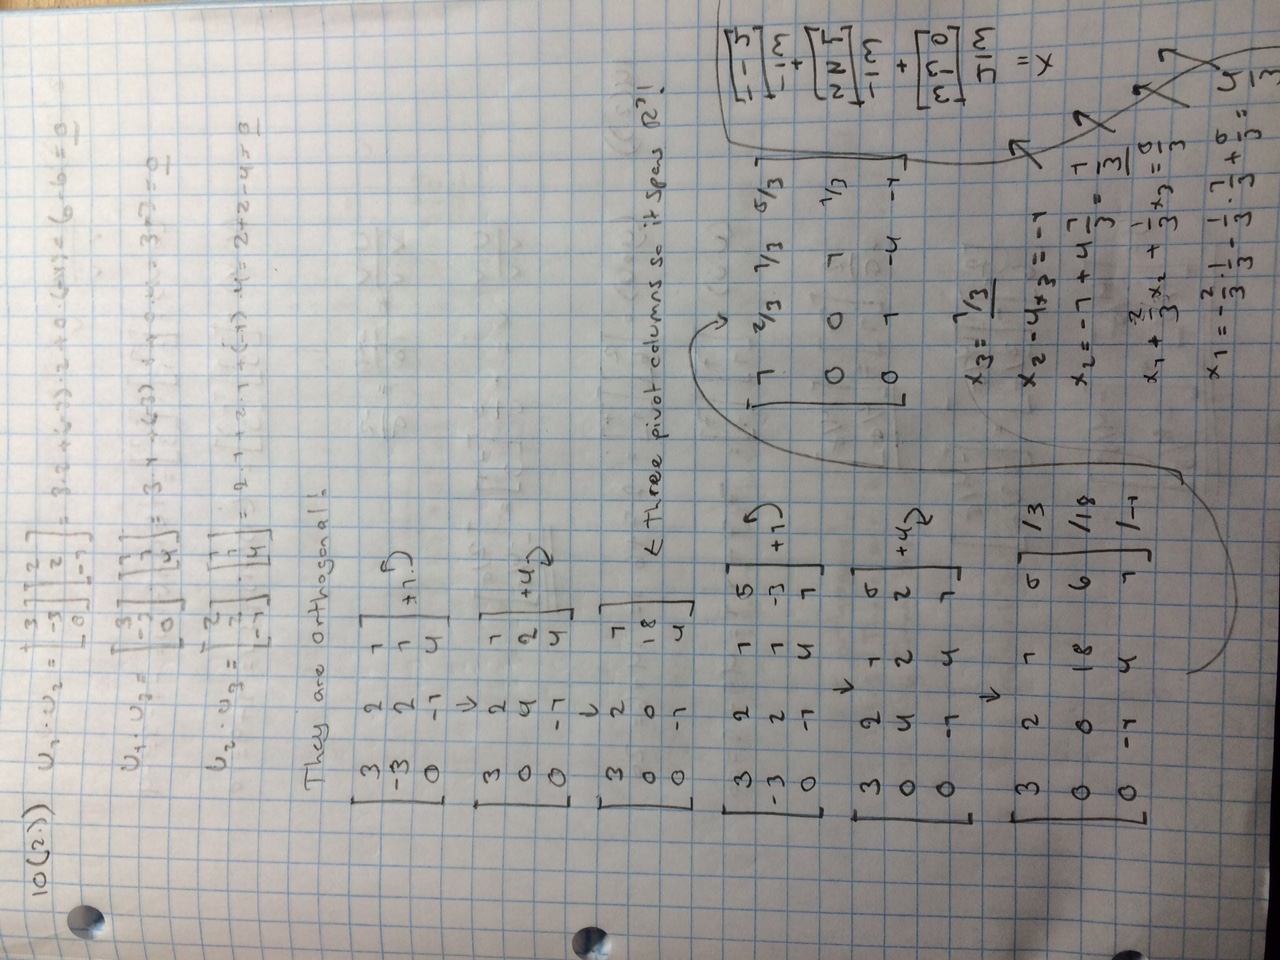 10(2.))
u₁ · u₂ = [3 -3 0] [2 2 -1] = 3·2+(-3)·2+0·(-1) = 6-6 = 0
u₁ · u₃ = [3 -3 0] · [1 1 4] = 3·1+(-3)·1+0·4 = 3-3 = 0
u₂ · u₃ = [2 2 -1] · [1 1 4] = 2·1+2·1+(-1)·4 = 2+2-4 = 0
They are orthogonal!
3 2 1
-3 2 1 +1·
0 -1 4
↓
3 2 1
0 4 2 +4·
0 -1 4
↓
3 2 1
0 0 18 ← three pivot columns so it spans R³!
0 -1 4
3 2 1 5
-3 2 1 -3 +1
0 -1 4 1
↓
3 2 1 5
0 4 2 2 +4
0 -1 4 1
↓
3 2 1 5 /3
0 0 18 6 /18
0 -1 4 1 /-1
1 2/3 1/3 5/3
0 0 1 1/3
0 1 -4 -1
x₃ = 1/3
x₂ - 4x₃ = -1
x₂ = -1 + 4 1/3 = 1/3
x₁ + 2/3 x₂ + 1/3 x₃ = 5/3
x₁ = -2/3 · 1/3 - 1/3 · 1/3 + 5/3 = 4/3
x = 4/3 [3 -3 0] + 1/3 [2 2 -1] + 1/3 [1 1 4]